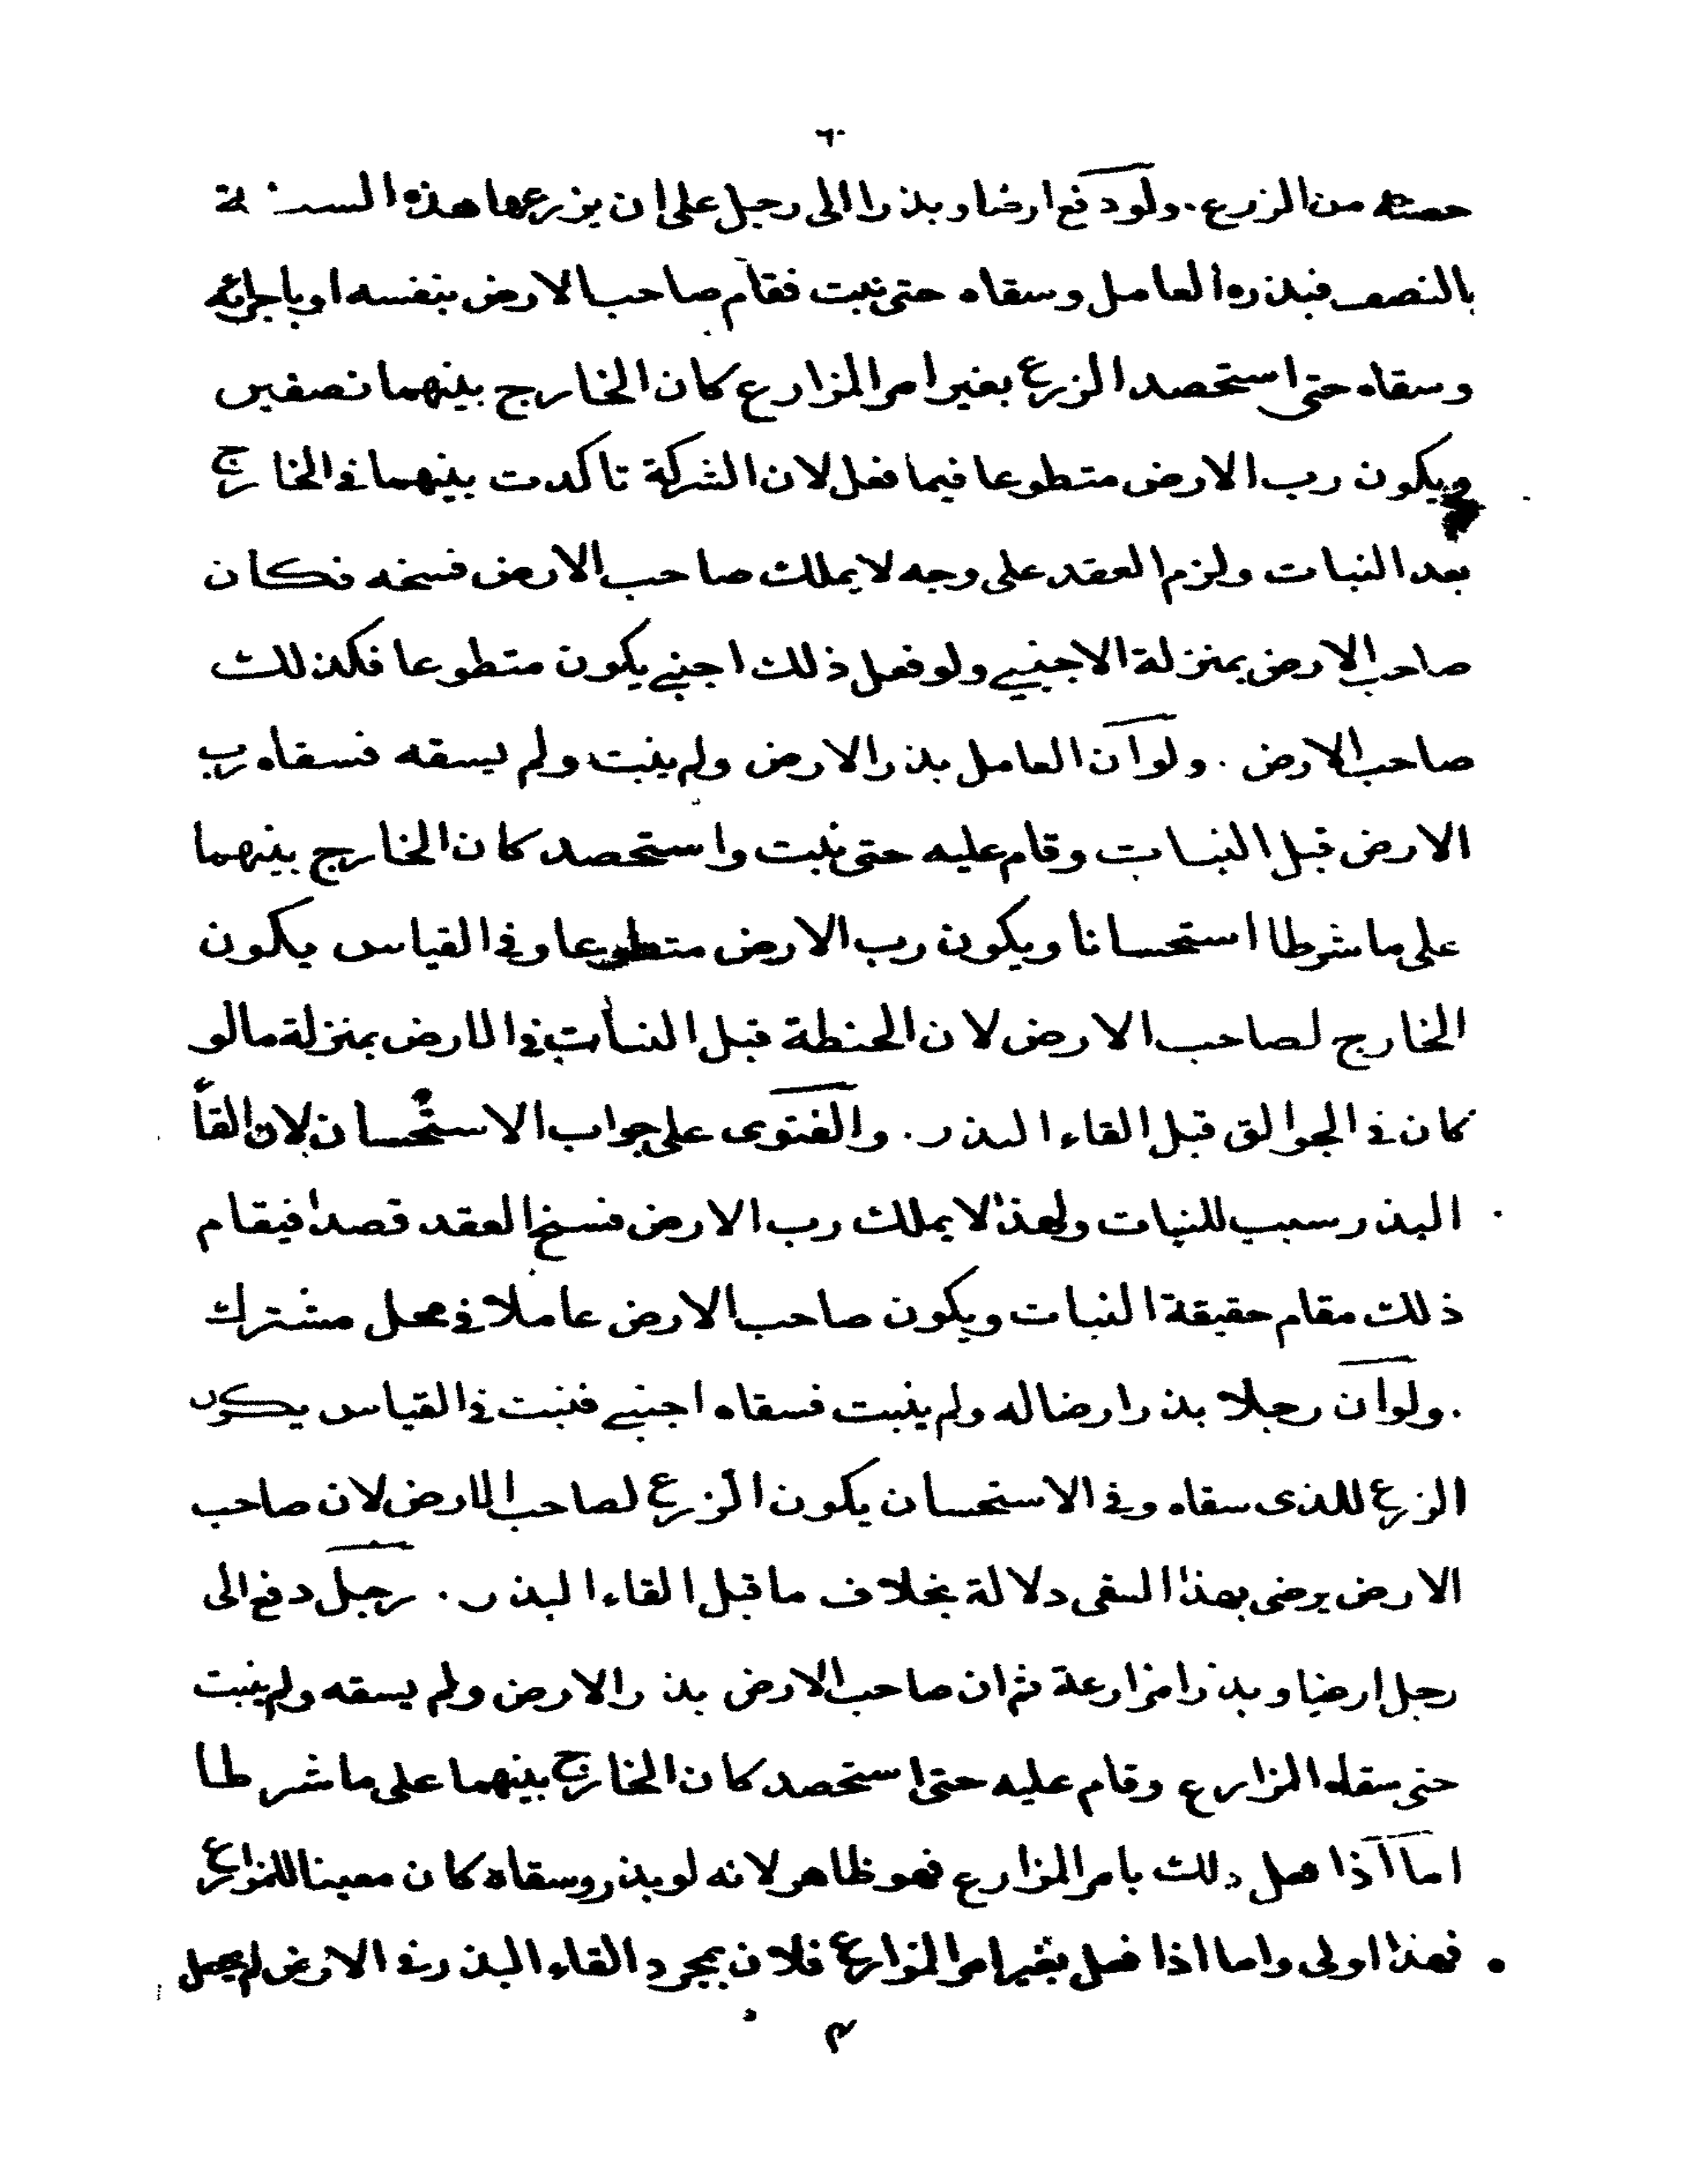 ٦٠
حصته من الزرع . ولو دفع ارضا وبذرا الى رجل على ان يزرعها هذه السنة
بالنصف فبذره العامل وسقاه حتى نبت فقام صاحب الارض بنفسه او باجرائه
وسقاه حتى استحصد الزرع بغير امر المزارع كان الخارج بينهما نصفين
ويكون رب الارض متطوعا فيما فعل لان الشركة تاكدت بينهما فى الخارج
بعد النبات ولزم العقد على وجه لا يملك صاحب الارض فسخه فكان
صاحب الارض بمنزلة الاجنبى ولو فعل ذلك اجنبى يكون متطوعا فكذلك
صاحب الارض . ولو ان العامل بذر الارض ولم ينبت ولم يسقه فسقاه رب
الارض قبل النبات وقام عليه حتى نبت واستحصد كان الخارج بينهما
على ما شرطا استحسانا ويكون رب الارض متطوعا وفى القياس يكون
الخارج لصاحب الارض لان الحنطة قبل النبات فى الارض بمنزلة ما لو
كان فى الجوالق قبل القاء البذر . والفتوى على جواب الاستحسان لان القاء
البذر سبب للنبات ولهذا لا يملك رب الارض فسخ العقد قصدا فيقام
ذلك مقام حقيقة النبات ويكون صاحب الارض عاملا فى محل مشترك
. ولو ان رجلا بذر ارضا له ولم ينبت فسقاه اجنبى فنبت فى القياس يكون
الزرع للذى سقاه وفى الاستحسان يكون الزرع لصاحب الارض لان صاحب
الارض يرضى بهذا السقى دلالة بخلاف ما قبل القاء البذر . رجل دفع الى
رجل ارضا وبذرا مزارعة ثم ان صاحب الارض بذر الارض ولم يسقه ولم ينبت
حتى سقاه المزارع وقام عليه حتى استحصد كان الخارج بينهما على ما شرطا
اما اذا فعل ذلك بامر المزارع فهو ظاهر لانه لو بذر وسقاه كان معينا للمزارع
فهذا اولى واما اذا فعل بغير امر المزارع فلان بمجرد القاء البذر فى الارض لم يحصل